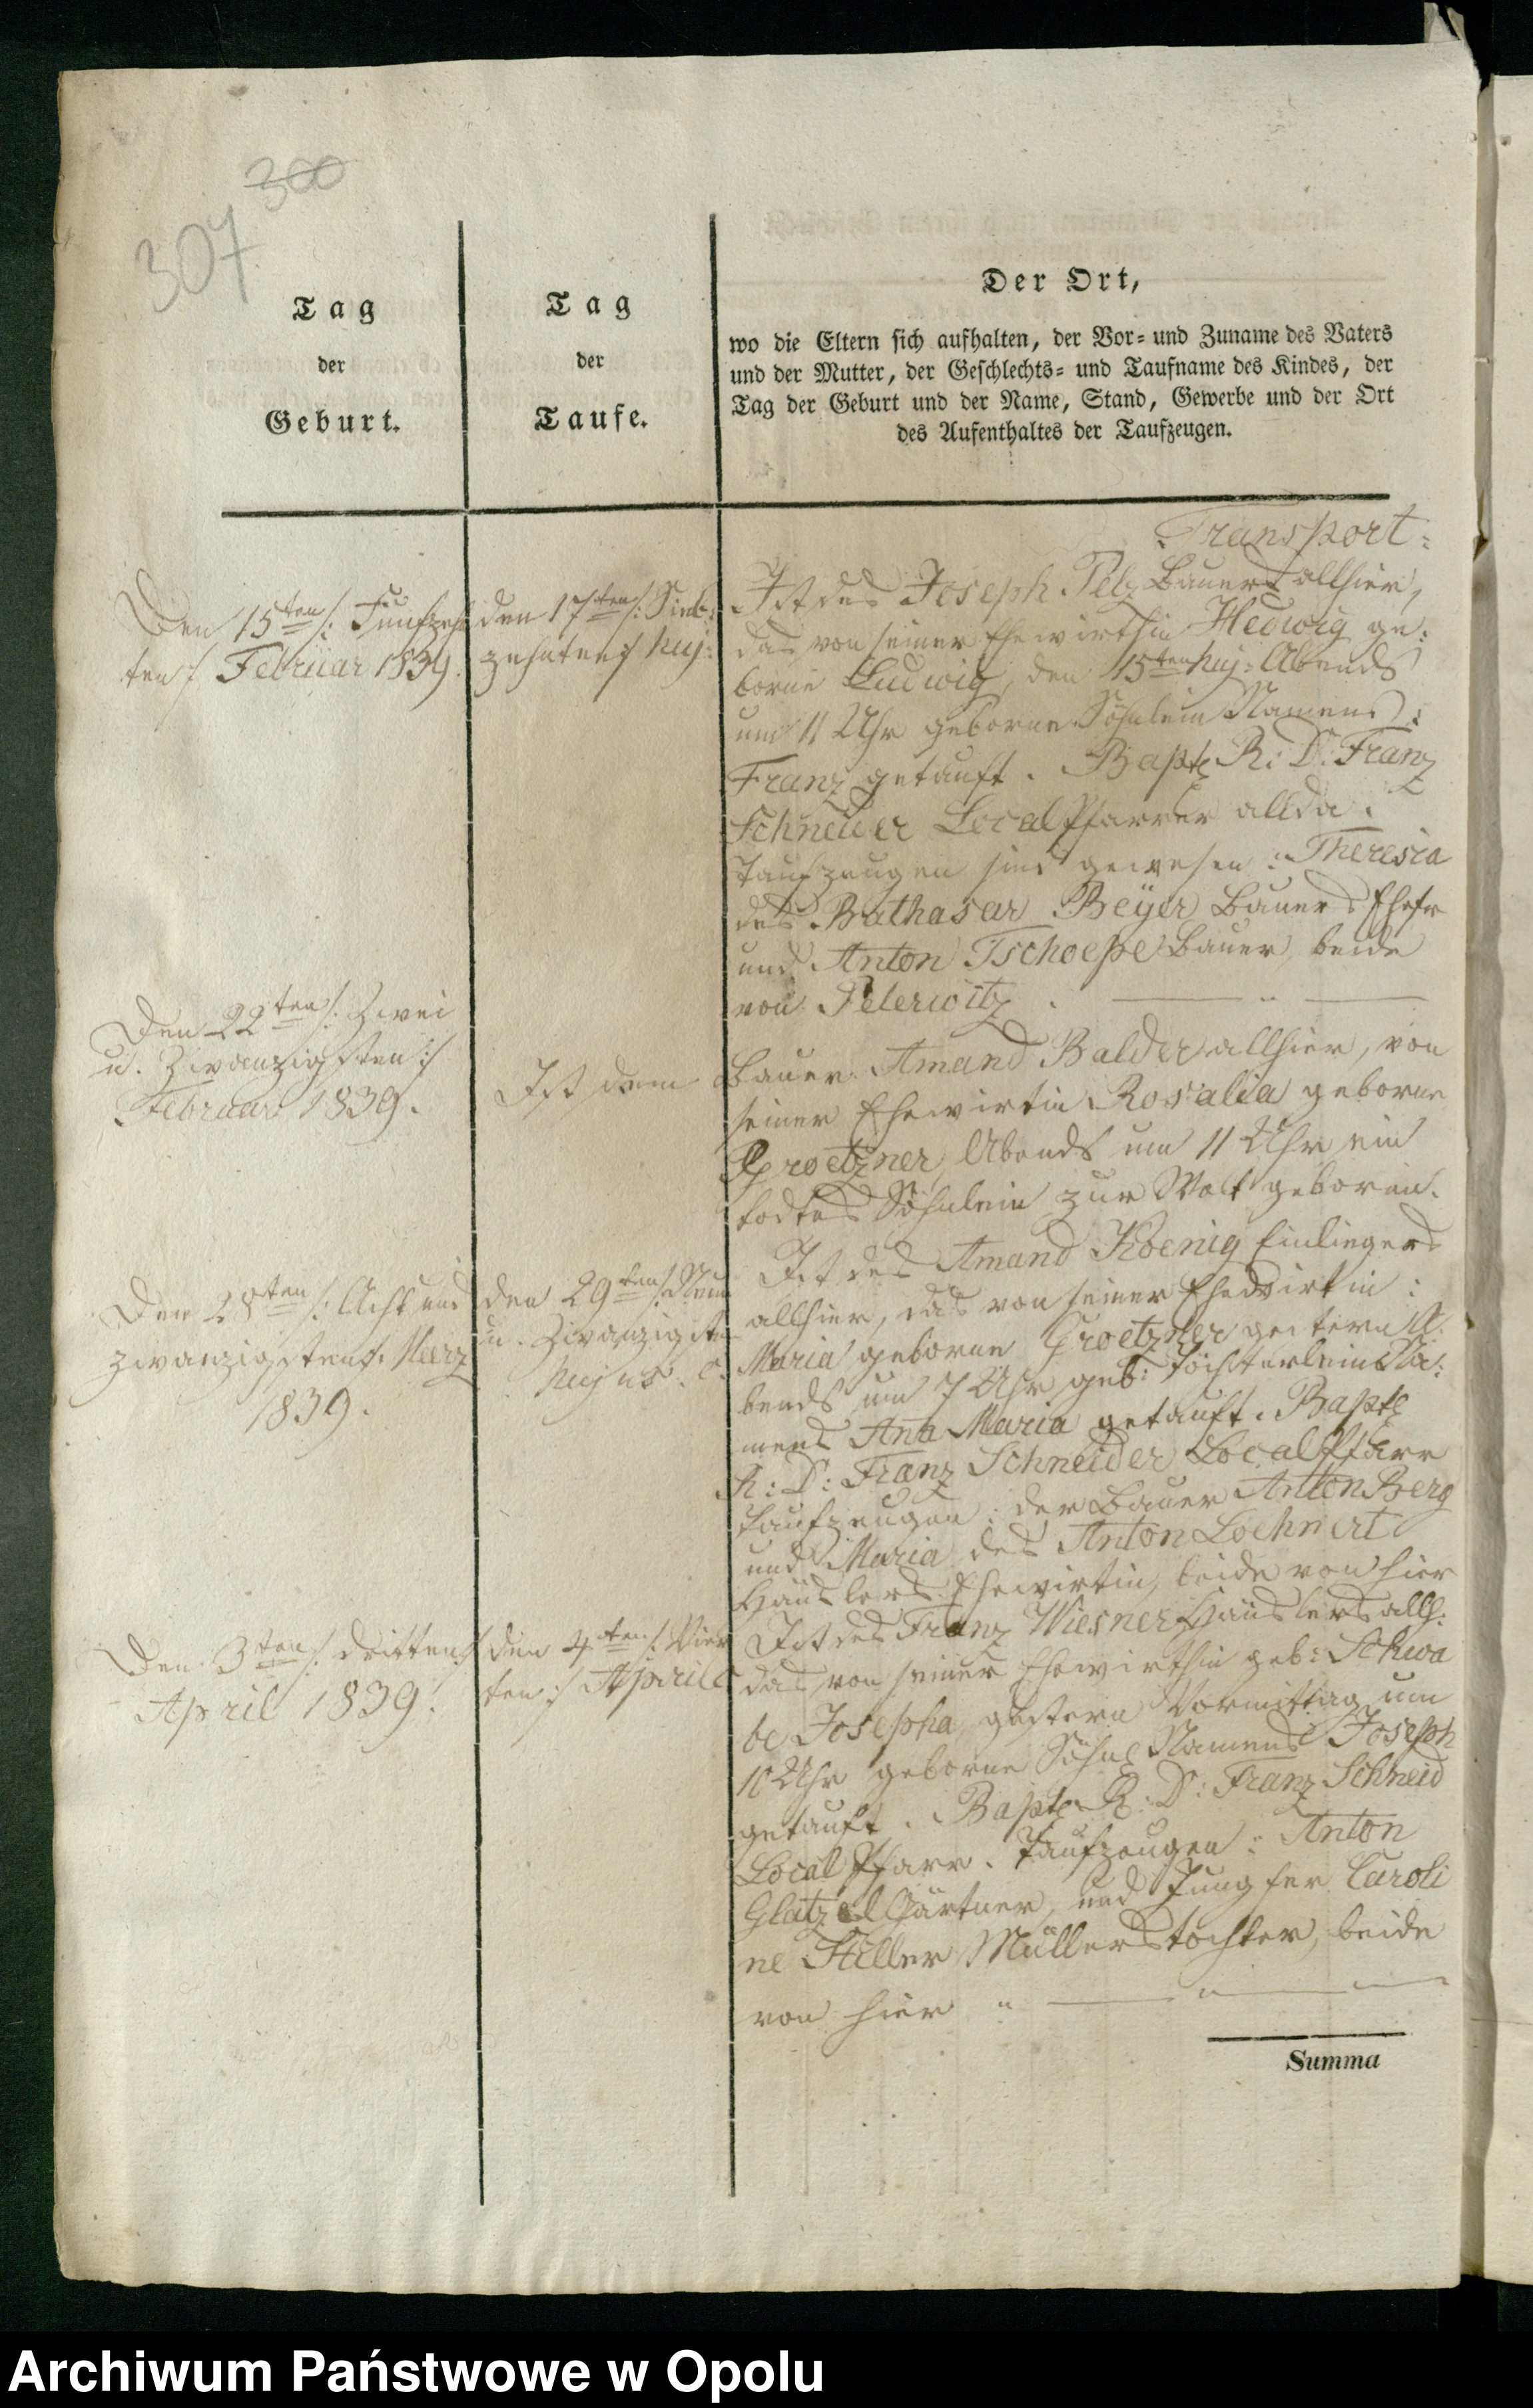 300
307
Tag
der
Geburt.
Tag
der
Taufe.
Der Ort,
wo die Eltern sich aufhalten, der Vor- und Zuname des Vaters
und der Mutter, der Geschlechts- und Taufname des Kindes, der
Tag der Geburt und der Name, Stand, Gewerbe und der Ort
des Aufenthaltes der Taufzeugen.
Transport
Den 15ten /: Fünfzehn
ten :/ Februar 1839.
den 17ten /: Sieb:
zehnten :/ huj:
Ist des Joseph Pelz Bauers allhier,
das von seiner Ehewirthin Hedwig ge:
borne Ludwig, den 15ten huj: Abends
um 11 Uhr geborne Söhnlein Namens:
Franz getauft. Bapt R: D: Franz
Schneider Local Pfarrer allda.
Taufzeugen sind gewesen: Theresia
des Bathasar Beyer Bauers Ehefr
und Anton Tschoepe Bauer, beide
von Peterwitz.
Den 22ten /: Zwei
u. Zwanzigsten :/
Februar 1839.
Ist dem Bauer Amand Balder allhier, von
seiner Ehewirtin Rosalia geborne
Groetzner, Abends um 11 Uhr ein
todtes Söhnlein zur Welt geboren.
Den 28ten /: Acht und
zwanzigsten :/ Merz
1839.
den 29ten /: Neun
u. Zwanzigsten
hujus. c.
Ist des Amand Koenig Einliegers
allhier, das von seiner Ehewirtin:
Maria geborne Groetzner gestern A:
bends um 7 Uhr geb: Töchterlein Na:
mens Ana Maria getauft. Bapt
R: D: Franz Schneider Local Pfarr
Taufzeugen: der Bauer Anton Berg
und Maria des Anton Loehnert
Häuslers Ehewirtin, beide von hier
Den 3ten /: dritten :/
April 1839.
den 4ten /: Vier
ten :/ April c
Ist des Franz Wiesner Häuslers allh:
das von seiner Ehewirthin geb: Schwa
be Josepha gestern Vormittag um
10 Uhr geborne Söhnl Namens Joseph
getauft. Bapt R: D: Franz Schneid
Local Pfarr. Taufzeugen: Anton
Glatzel Gärtner, und Jungfer Caroli
ne Hiller Müllerstochter, beide
von hier
Summa
Archiwum Państwowe w Opolu